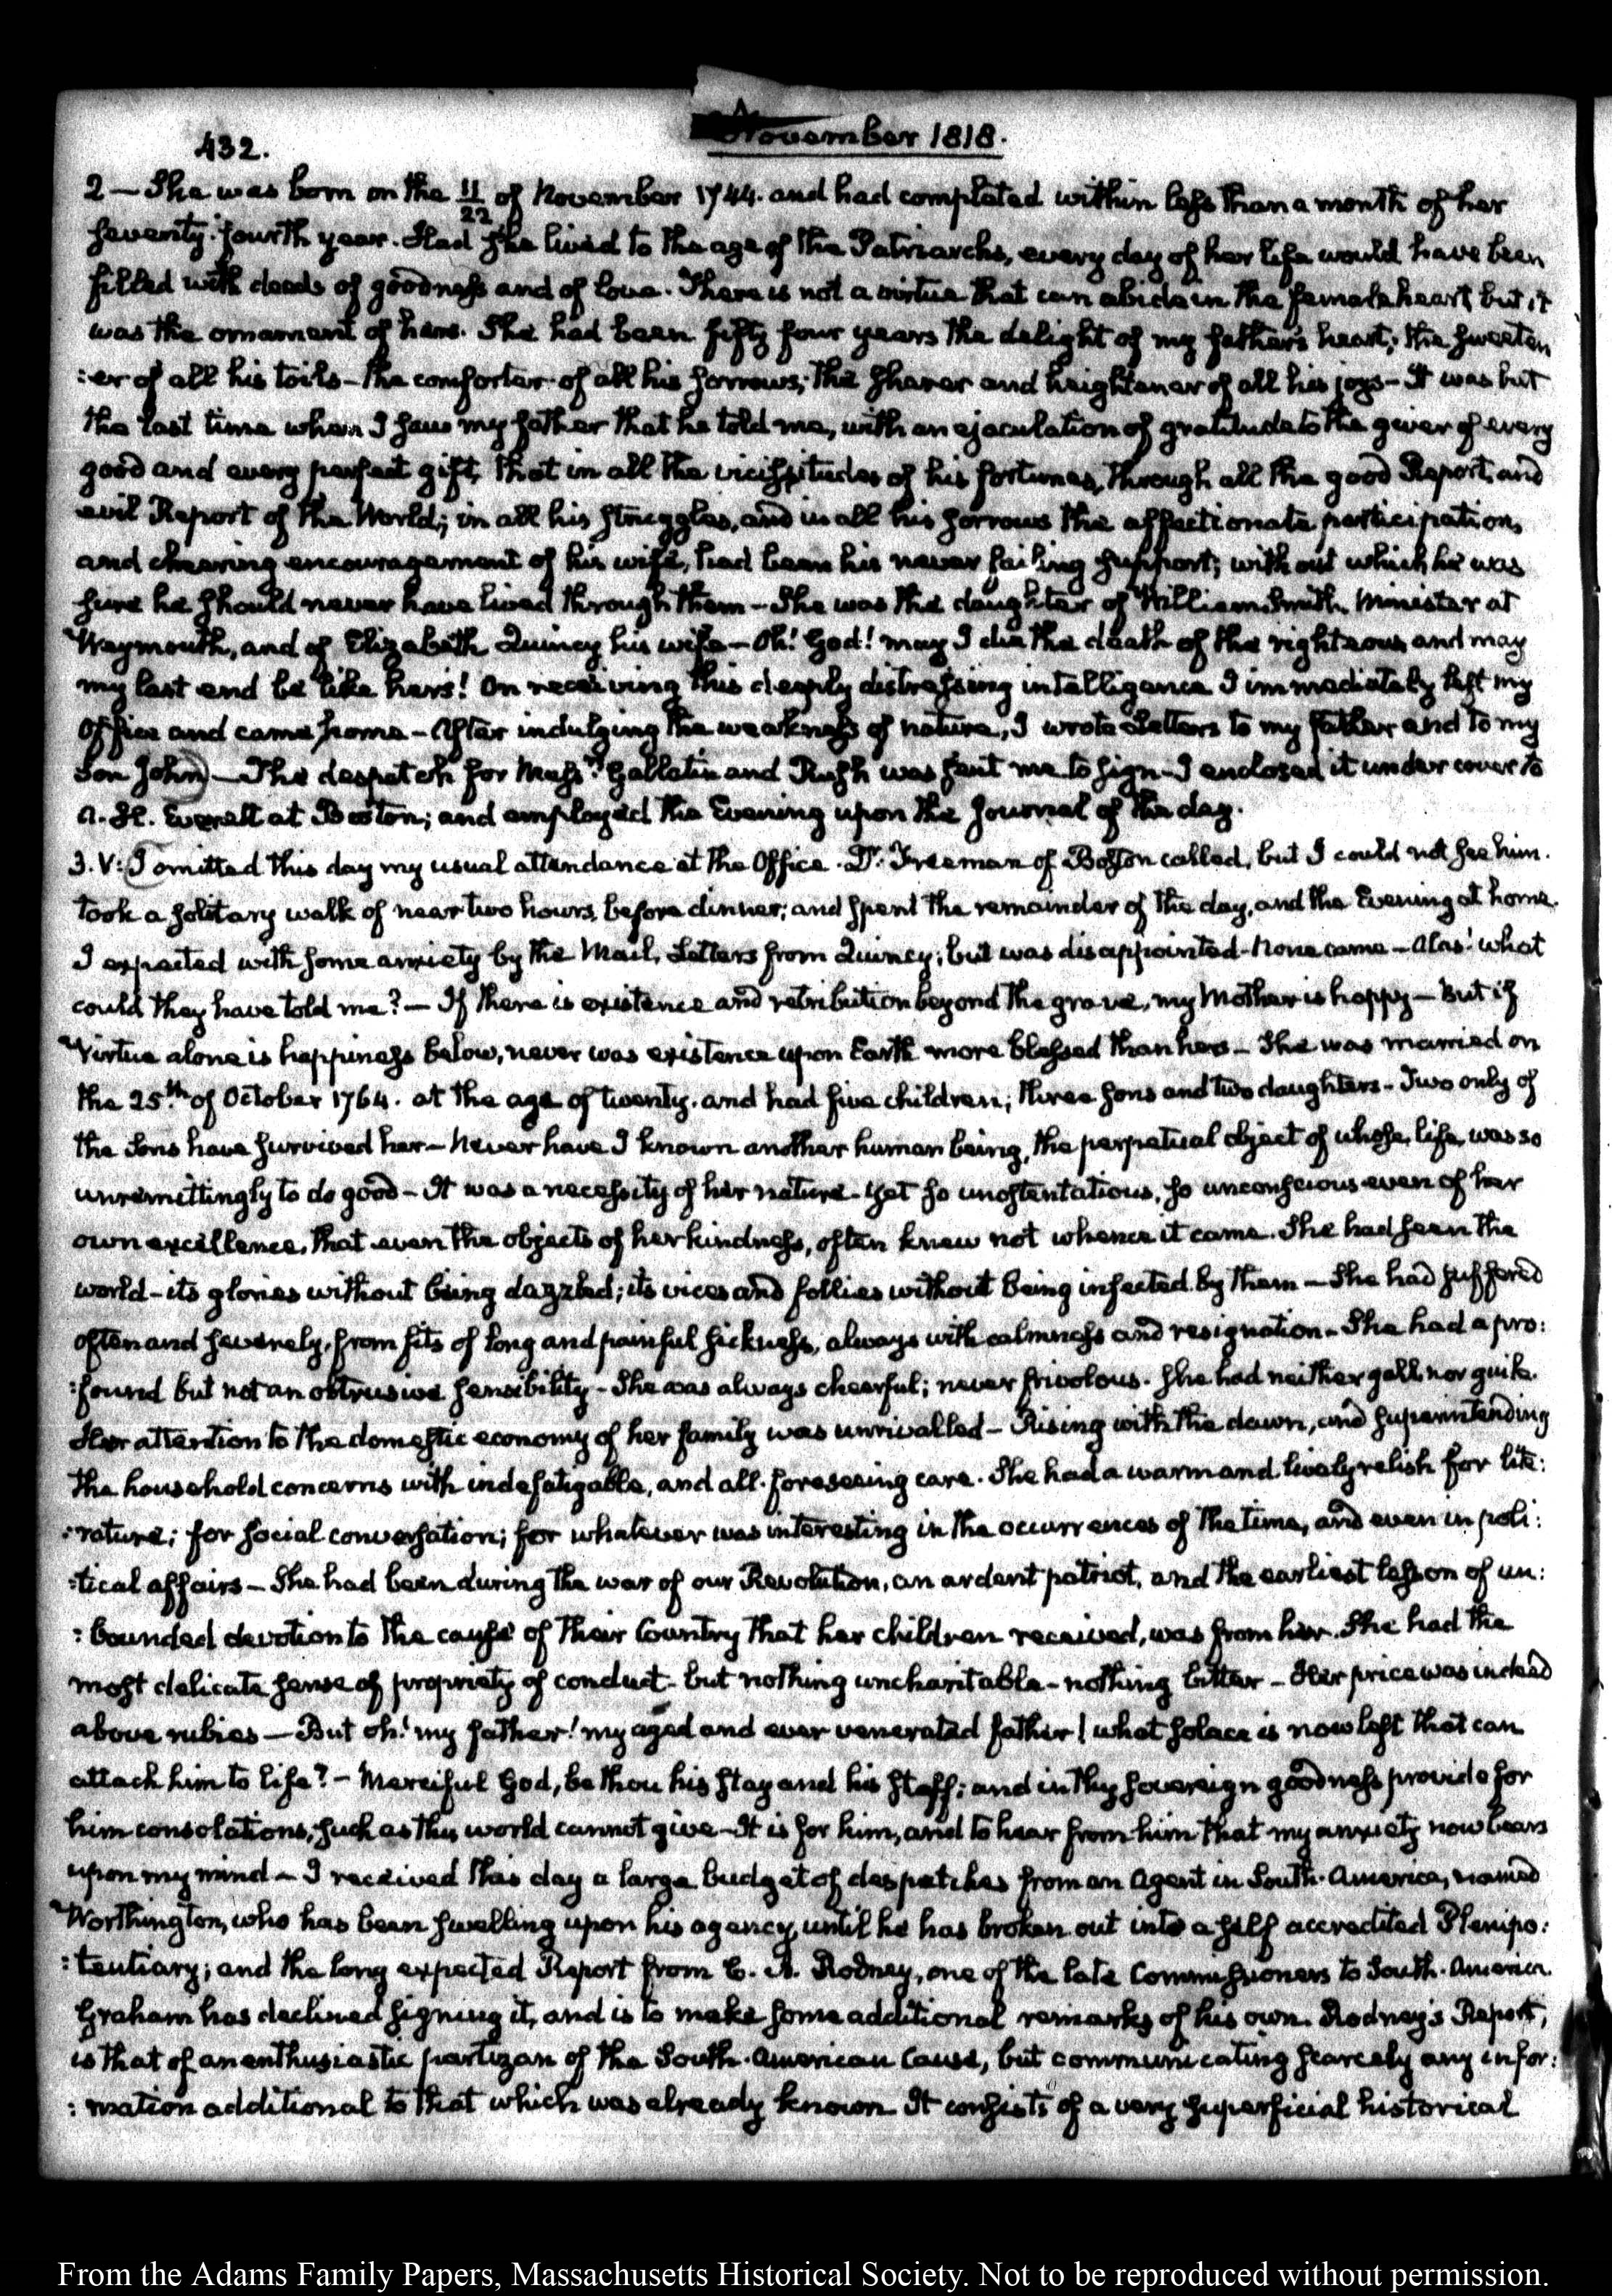 432.
November 1818.
2 — She was born on the 11/22 of November 1744. and had completed within less than a month of her
seventy-fourth year. Had she lived to the age of the Patriarchs, every day of her life would have been
filled with deeds of goodness and of love. There is not a virtue that can abide in the female heart but it
was the ornament of hers. She had been fifty four years the delight of my father's heart; the sweeten
:er of all his toils – the comforter of all his sorrows; the sharer and heightener of all his joys – It was but
the last time when I saw my father that he told me, with an ejaculation of gratitude to the giver of every
good and every perfect gift, that in all the vicissitudes of his fortunes, through all the good Report, and
evil Report of the World; in all his struggles, and in all his sorrows the affectionate participation,
and cheering encouragement of his wife, had been his never failing support; without which he was
sure he should never have lived through them – She was the daughter of William Smith, Minister at
Weymouth, and of Elizabeth Quincy his wife – Oh! God! may I die the death of the righteous and may
my last end be like hers! On receiving this deeply distressing intelligence I immediately left my
Office and came home – After indulging the weakness of nature, I wrote Letters to my father and to my
Son John – The despatch for Mess.rs Gallatin and Rush was sent me to sign – I enclosed it under cover to
A. H. Everett at Boston; and employed the Evening upon the Journal of the day.
3. V: I omitted this day my usual attendance at the Office. Dr. Freeman of Boston called, but I could not see him.
took a solitary walk of near two hours, before dinner; and spent the remainder of the day, and the Evening at home.
I expected with some anxiety by the Mail, Letters from Quincy; but was disappointed – None came – Alas! what
could they have told me? — If there is existence and retribution beyond the grave, my Mother is happy – But if
Virtue alone is happiness below, never was existence upon Earth more blessed than hers – She was married on
the 25th of October 1764. at the age of twenty. and had five children; three sons and two daughters – Two only of
the Sons have survived her – Never have I known another human being, the perpetual object of whose life, was so
unremittingly to do good – It was a necessity of her nature – Yet so unostentatious, so unconscious even of her
own excellence, that even the objects of her kindness, often knew not whence it came. She had seen the
world – its glories without being dazzled; its vices and follies without being infected by them – She had suffered
often and severely, from fits of long and painful sickness, always with calmness and resignation – She had a pro:
:found but not an obtrusive sensibility – She was always cheerful; never frivolous. She had neither gall nor guile.
Her attention to the domestic economy of her family was unrivalled – Rising with the dawn, and superintending
the household concerns with indefatigable, and all-foreseeing care. She had a warm and lively relish for lite:
:rature; for social conversation; for whatever was interesting in the occurrences of the time, and even in poli:
:tical affairs – She had been during the war of our Revolution, an ardent patriot, and the earliest lesson of un:
:bounded devotion to the cause of their Country that her children received, was from her. She had the
most delicate sense of propriety of conduct – but nothing uncharitable – nothing bitter – Her price was indeed
above rubies — But oh! my father! my aged and ever venerated father! what solace is now left that can
attach him to life? – Merciful God, be thou his stay and his staff; and in thy sovereign goodness provide for
him consolations, such as this world cannot give – It is for him, and to hear from him that my anxiety now bears
upon my mind – I received this day a large budget of despatches from an Agent in South-America, named
Worthington, who has been swelling upon his agency, until he has broken out into a self accredited Plenipo:
:tentiary; and the long expected Report from C. A. Rodney, one of the late Commissioners to South-America.
Graham has declined signing it, and is to make some additional remarks of his own. Rodney's Report,
is that of an enthusiastic partizan of the South-American Cause, but communicating scarcely any infor:
:mation additional to that which was already known. It consists of a very superficial historical
From the Adams Family Papers, Massachusetts Historical Society. Not to be reproduced without permission.